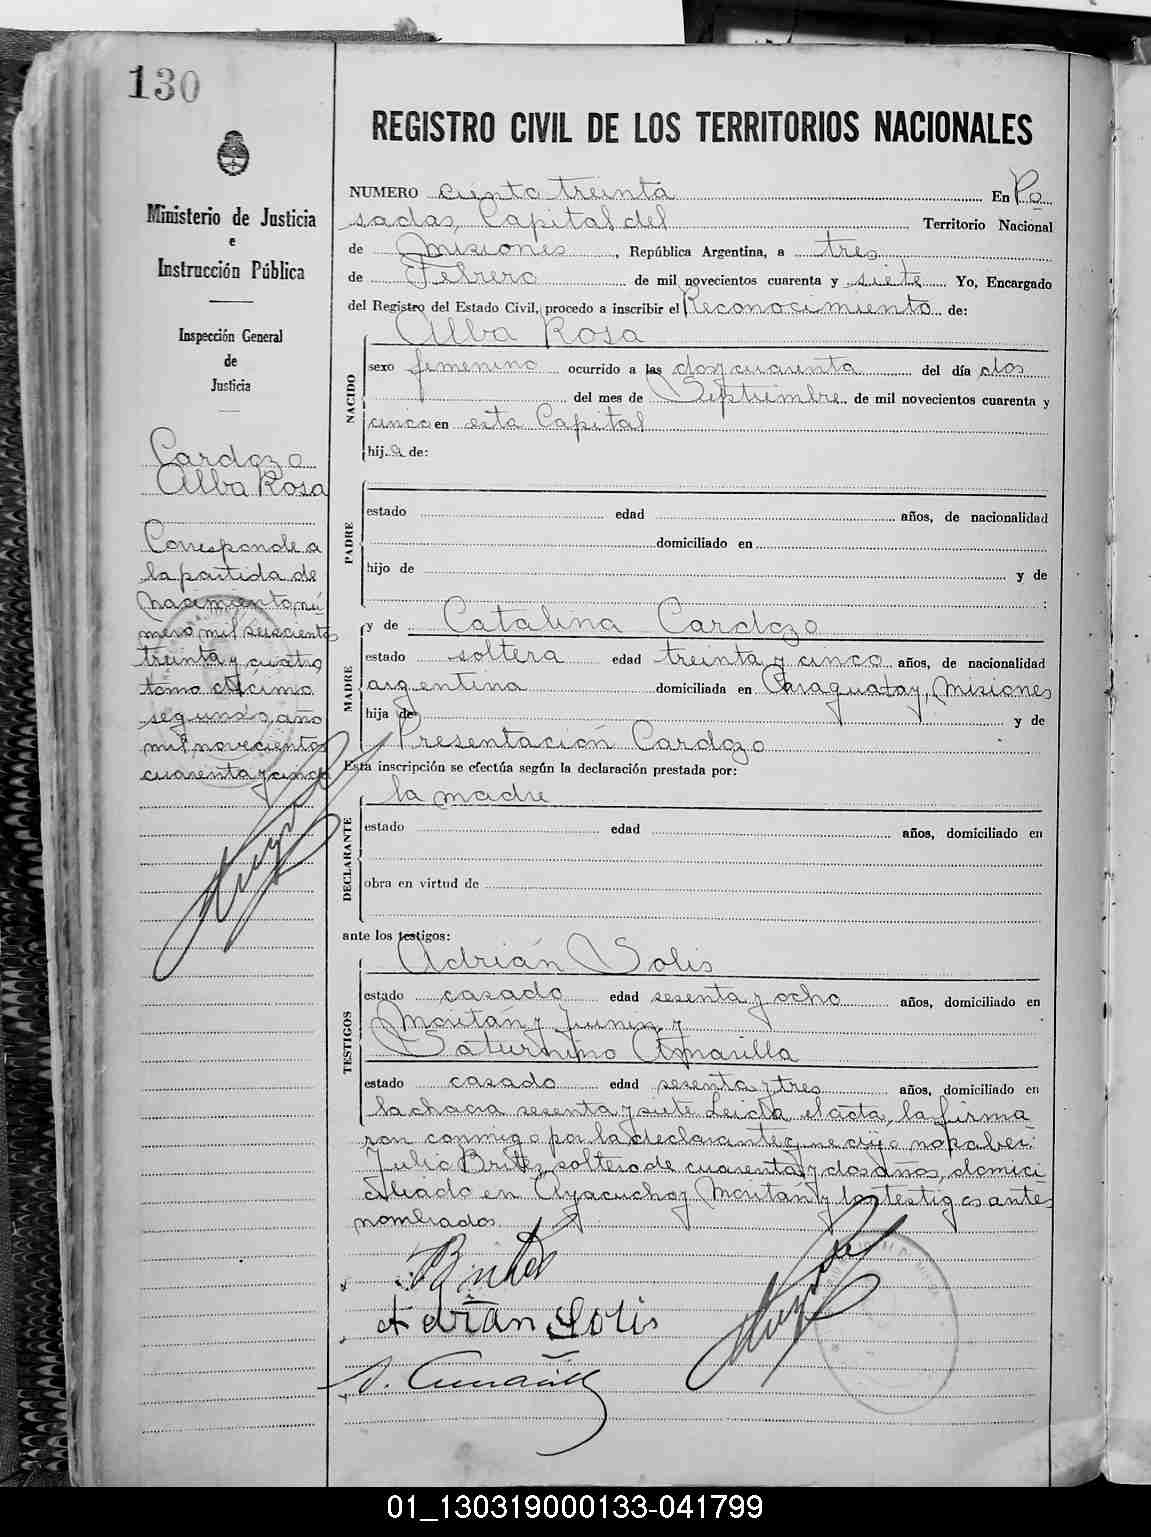 130
Ministerio de Justicia
e
Instrucción Pública
Inspección General
de
Justicia
Cardozo
Alba Rosa
Corresponde a
la partida de
nacimiento nú-
mero mil seiscientos
treinta y cuatro
tomo décimo
segundo, año
mil novecientos
cuarenta y cinco
REGISTRO CIVIL DE LOS TERRITORIOS NACIONALES
NUMERO ciento treinta En Po
sadas, Capital del Territorio Nacional
de Misiones, República Argentina, a tres
de Febrero de mil novecientos cuarenta y siete Yo, Encargado
del Registro del Estado Civil, procedo a inscribir el Reconocimiento de:
Alba Rosa
NACIDO
sexo femenino ocurrido a las dos y cuarenta del día dos
del mes de Septiembre de mil novecientos cuarenta y
cinco en esta Capital
hija de:
PADRE
estado edad años, de nacionalidad
domiciliado en
hijo de y de
:
y de Catalina Cardozo
MADRE
estado soltera edad treinta y cinco años, de nacionalidad
argentina domiciliada en Caraguatay, Misiones
hija de y de
Presentación Cardozo
Esta inscripción se efectúa según la declaración prestada por:
la madre
DECLARANTE
estado edad años, domiciliado en
obra en virtud de
ante los testigos:
Adrián Solis
TESTIGOS
estado casado edad sesenta y ocho años, domiciliado en
Moritán y Junin y
Saturnino Amarilla
estado casado edad sesenta y tres años, domiciliado en
la chacra sesenta y siete. Leida el acta, la firma
ron conmigo por la declarante que dijo no saber:
Julio Britez, soltero de cuarenta y dos años, domici
ciliado en Ayacucho y Moritán y los testigos antes
nombrados
Adrian Solis
01_130319000133-041799